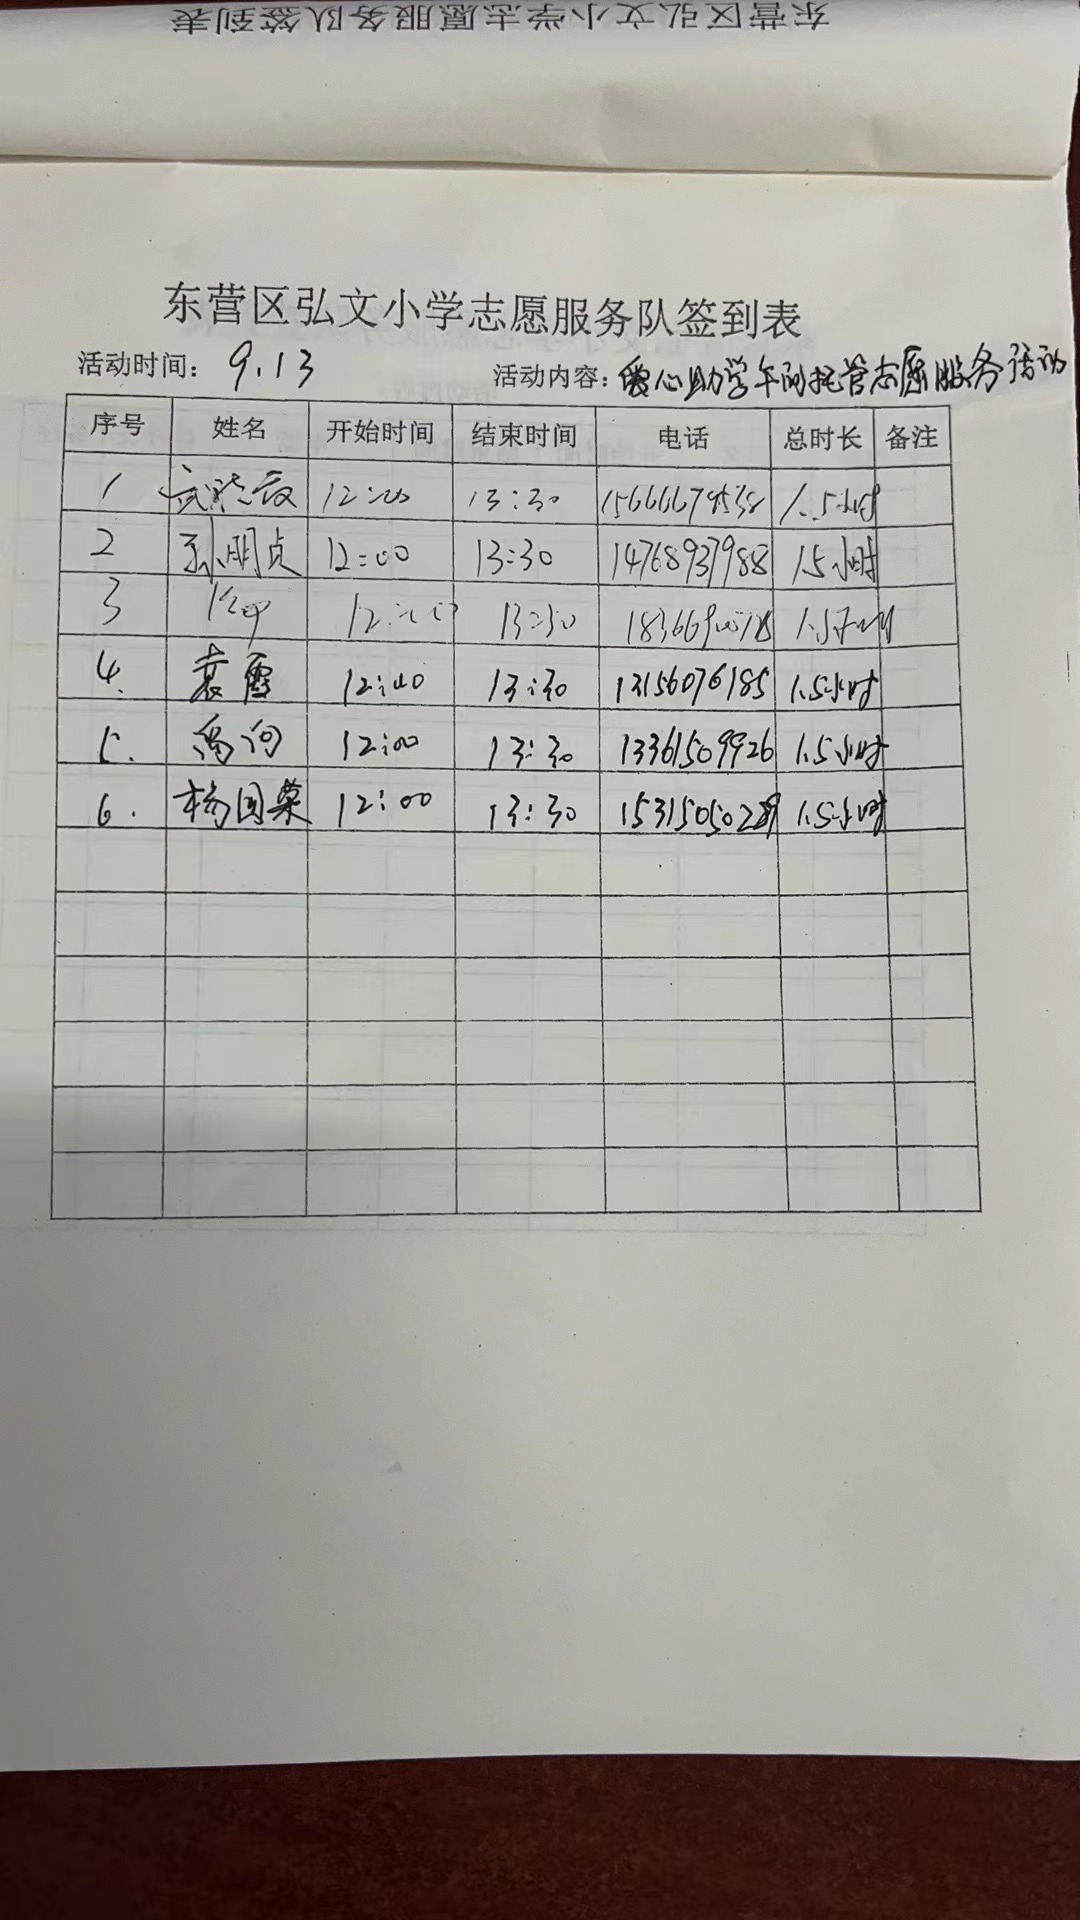 东营区弘文小学志愿服务队签到表
东营区弘文小学志愿服务队签到表
活动时间：9.13 活动内容：爱心助学午间托管志愿服务活动
序号 姓名 开始时间 结束时间 电话 总时长 备注
1 12:00 13:30 1.5小时
2 孙明贞 12:00 13:30 14768937988 1.5小时
3 12:00 13:30 1.5小时
4. 袁霞 12:00 13:30 13156076185 1.5小时
5. 12:00 13:30 13361509926 1.5小时
6. 杨国荣 12:00 13:30 1.5小时